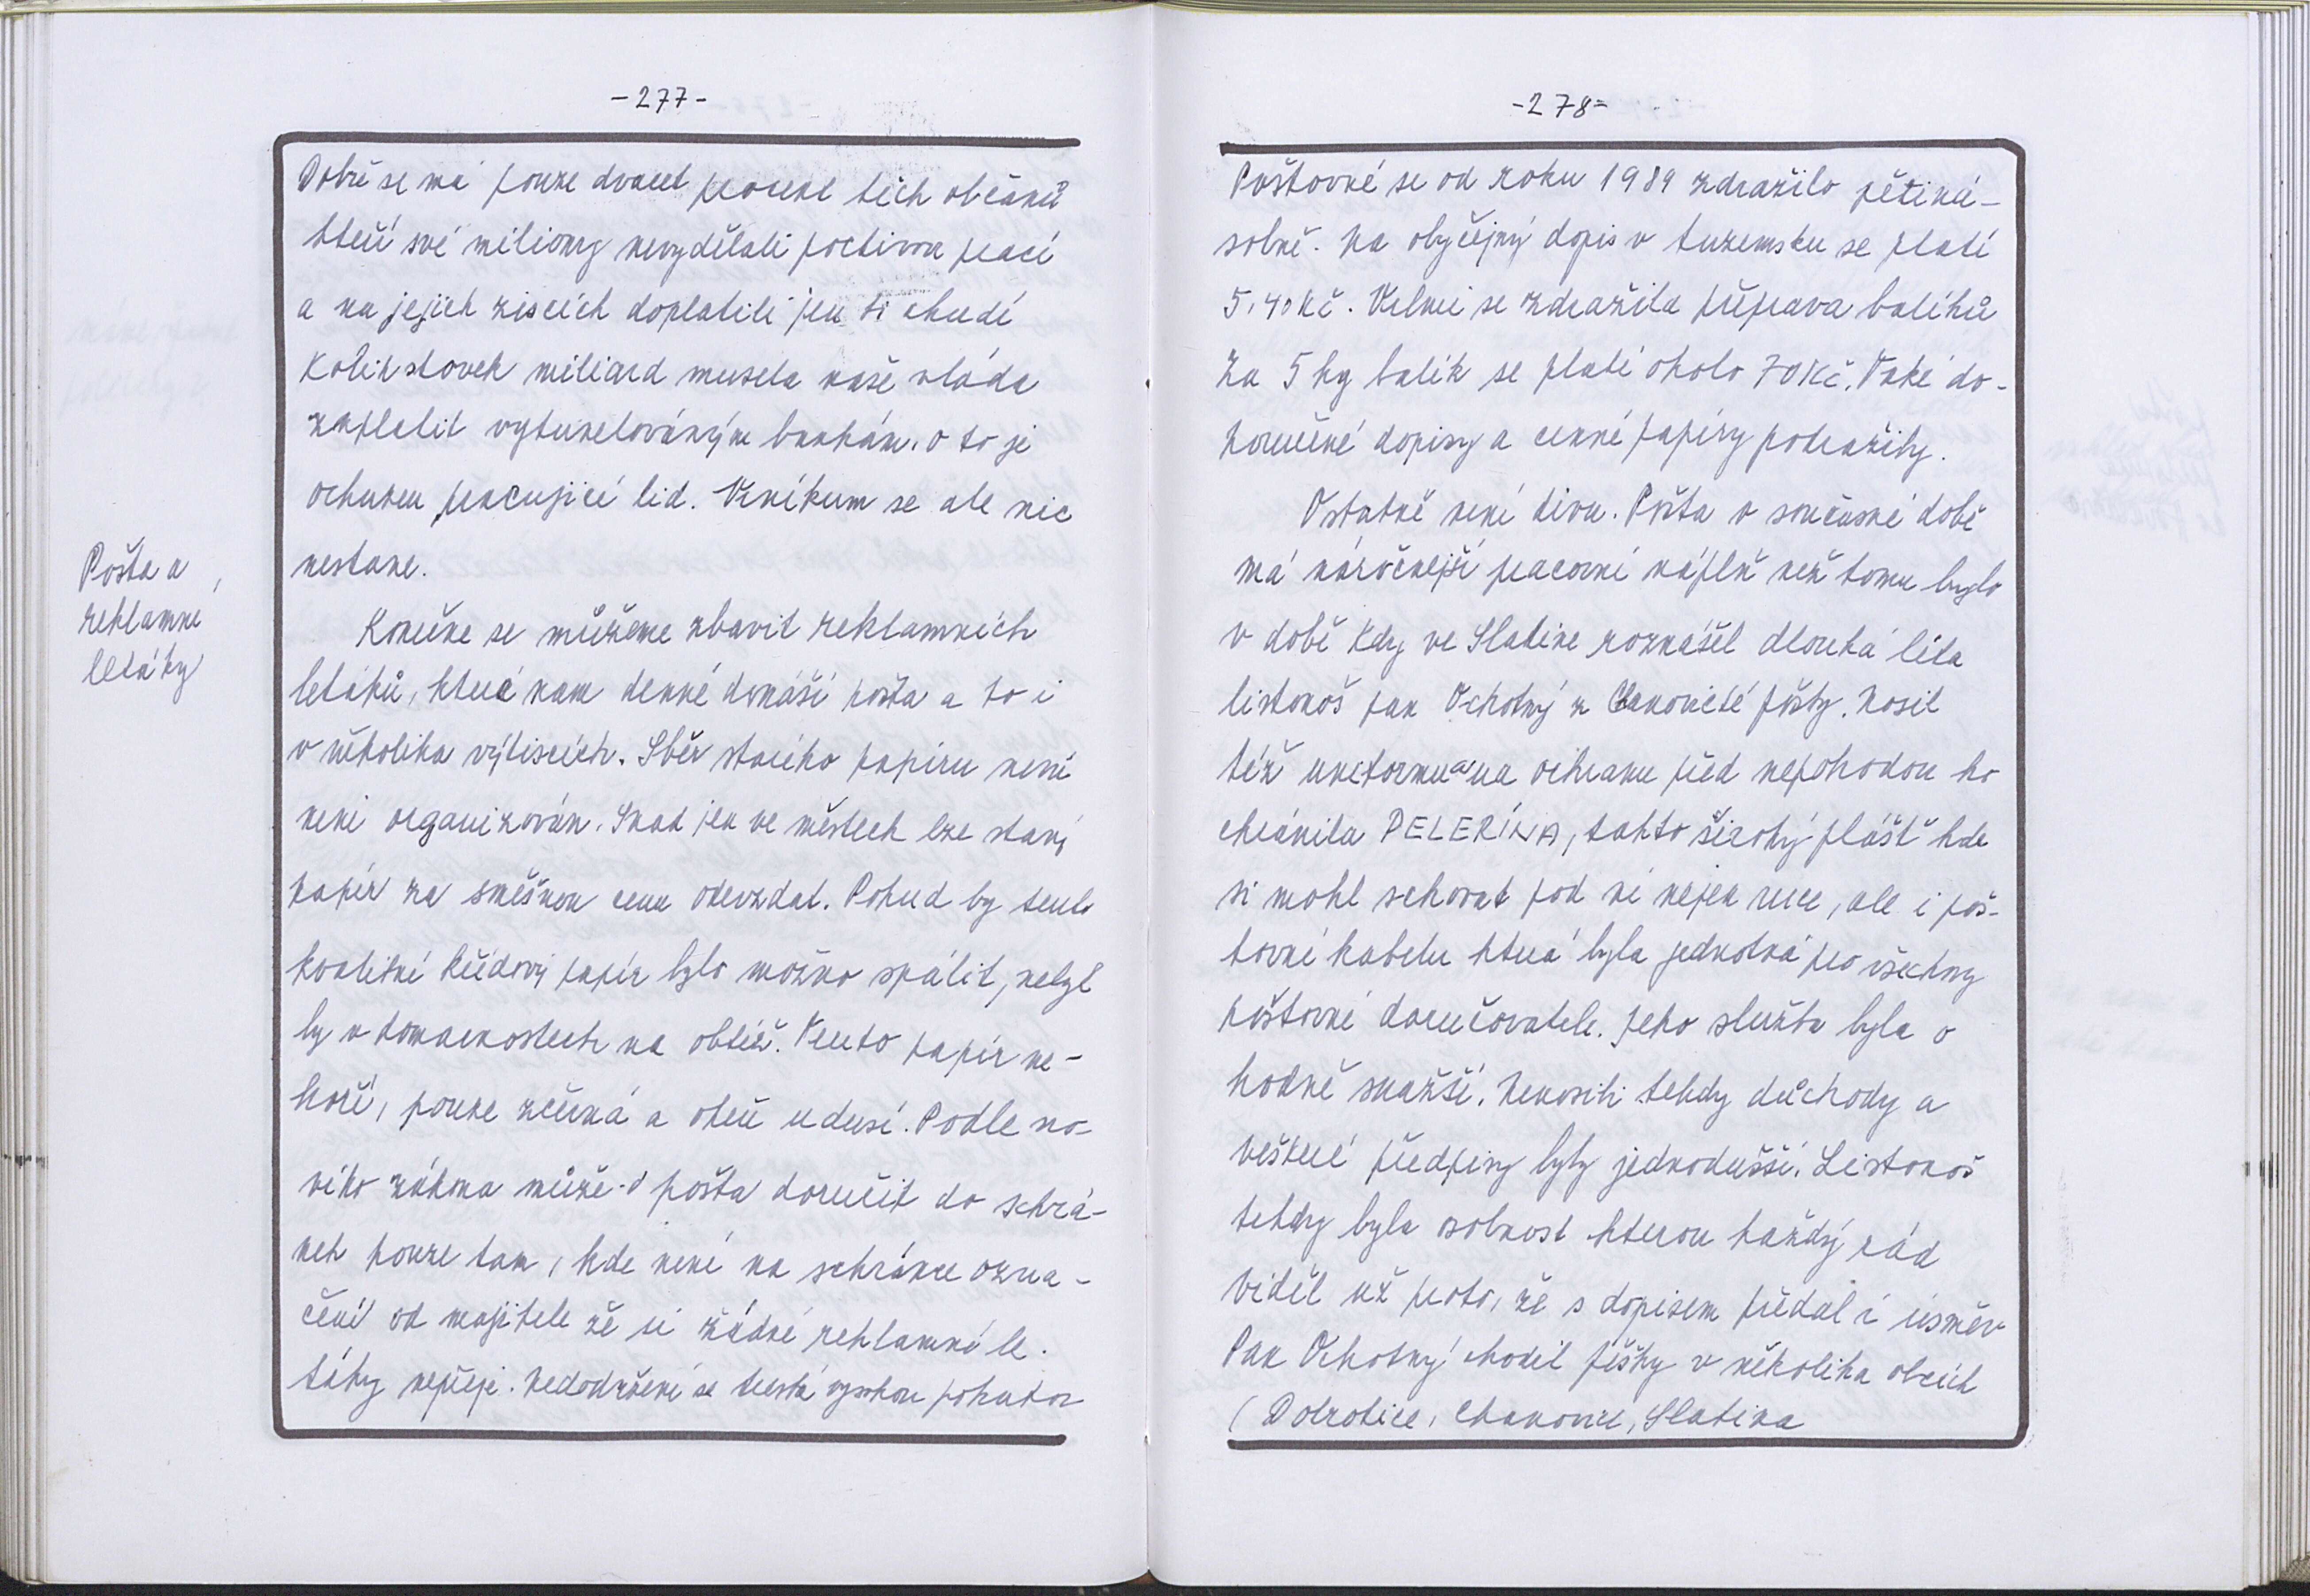 -277-
Dobře se má pouze dvacet procent těch občanů
kteří své miliony nevydělali poctivou prací
a na jejich ziscích doplatili jen ti chudí
Kolik stovek miliard musela naše vláda
zaplatit vytunelovaným bankám. o to je
ochuzen pracující lid. Viníkum se ale nic
nestane.
Pošta a
reklamne
letáky
Konečne se můžeme zbavit reklamních
letáků, které nam denně donáší pošta a to i
v několika výtiscích. Sběr starého papíru není
není organizován. Snad jen ve městech lze starý
papír za směšnou cenu odevzdat. Pokud by tento
kvalitní křídový papír bylo možno spálit, nebyl
by v domacnostech na obtíž. Tento papír ne-
hoří, pouze zčerná a oheň udusí. Podle no-
vého zákona může pošta doručit do schrá-
nek pouze tam, kde není na schránce ozna-
čení od majitele že si žádné reklamní le-
táky nepřeje. Nedodržení se trestá vysokou pokutou
-278-
Poštovné se od roku 1989 zdražilo pětiná-
sobně. Na obyčejný dopis v tuzemsku se platí
5.40 Kč. Velmi se zdražila přeprava balíků
Za 5 kg balík se platí okolo 70 Kč. Také do-
poručené dopisy a cenné papíry podražily.
Ostatně není divu. Pošta v současné době
má náročnější pracovní náplň než tomu bylo
v době kdy ve Slatine roznášel dlouhá léta
listonoš pan Ochotný z Chanovické pošty. Nosil
též uniformu a na ochranu před nepohodou ho
chránila PELERÍNA, takto široký plášť kde
si mohl schovat pod ní nejen ruce, ale i poš-
tovní kabelu která byla jednotná pro všechny
poštovní doručovatele. Jeho služba byla o
hodně snažší. Nenosili tehdy důchody a
veškeré předpisy byly jednodušší. Listonoš
tehdy byla osobnost kterou každý rád
viděl už proto, že s dopisem předal i úsměv
Pan Ochotný chodil pěšky v několika obcích
( Dobrotice, Chanovice, Slatina